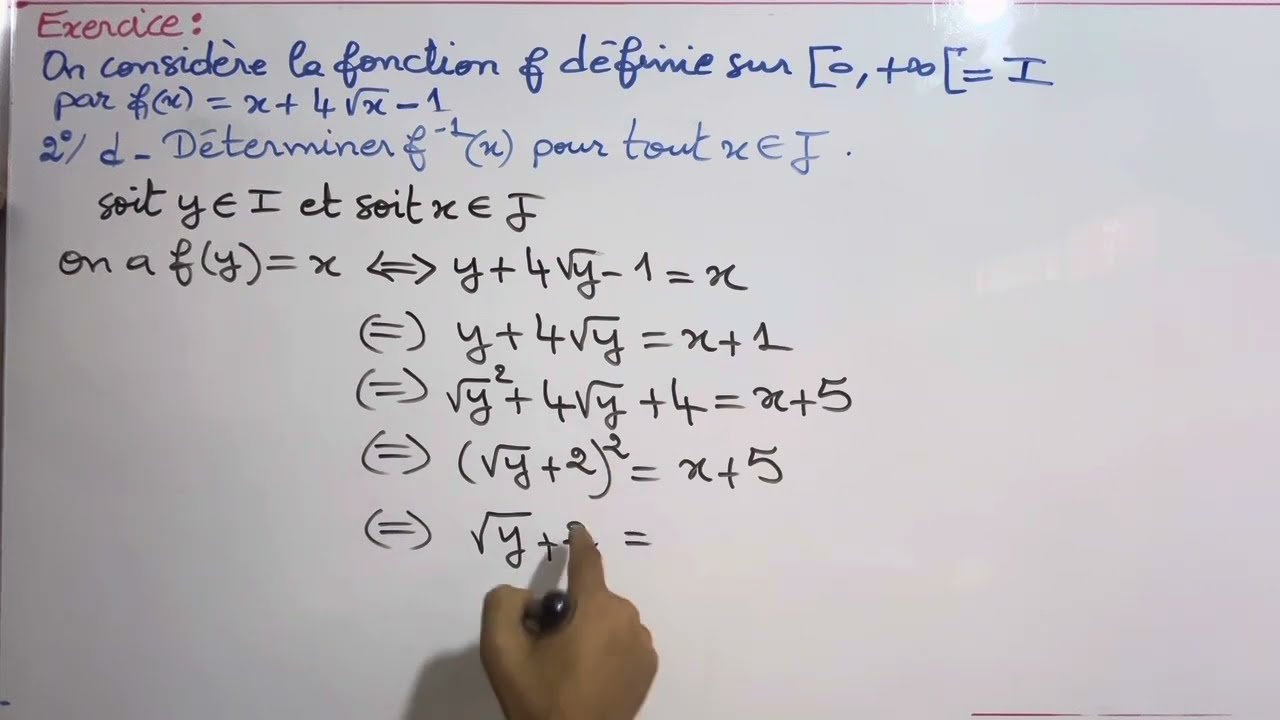 Exercice :
On considère la fonction f définie sur [0, +∞[ = I
par f(x) = x + 4√x - 1
2°/ d - Déterminer f⁻¹(x) pour tout x ∈ J .
soit y ∈ I et soit x ∈ J
on a f(y) = x ⟺ y + 4√y - 1 = x
(=) y + 4√y = x + 1
(=) √y² + 4√y + 4 = x + 5
(=) (√y + 2)² = x + 5
(=) √y + =